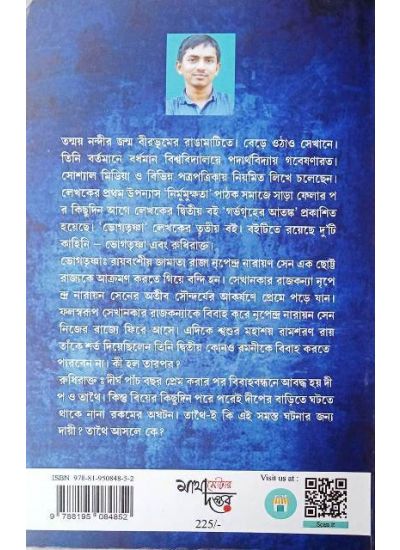 তন্ময় নন্দীর জন্ম বীরভূমের রাঙামাটিতে। বেড়ে ওঠাও সেখানে।
তিনি বর্তমানে বর্ধমান বিশ্ববিদ্যালয়ে পদার্থবিদ্যায় গবেষণারত।
সোশ্যাল মিডিয়া ও বিভিন্ন পত্রপত্রিকায় নিয়মিত লিখে চলেছেন।
লেখকের প্রথম উপন্যাস 'নির্মুমুক্ষতা' পাঠক সমাজে সাড়া ফেলার প
র কিছুদিন আগে লেখকের দ্বিতীয় বই 'গর্ভগৃহের আতঙ্ক' প্রকাশিত
হয়েছে। 'ভোগতৃষ্ণা' লেখকের তৃতীয় বই। বইটিতে রয়েছে দু'টি
কাহিনি – ভোগতৃষ্ণা এবং রুধিরাক্ত।
ভোগতৃষ্ণাঃ রায়বংশীয় জামাতা রাজা নৃপেন্দ্র নারায়ণ সেন এক ছোট্ট
রাজ্যকে আক্রমণ করতে গিয়ে বন্দি হন। সেখানকার রাজকন্যা নৃপে
ন্দ্র নারায়ন সেনের অতীব সৌন্দর্যের আকর্ষণে প্রেমে পড়ে যান।
ফলস্বরূপ সেখানকার রাজকন্যাকে বিবাহ করে নৃপেন্দ্র নারায়ন সেন
নিজের রাজ্যে ফিরে আসে। এদিকে শ্বশুর মহাশয় রামশরণ রায়
তাঁকে শর্ত দিয়েছিলেন তিনি দ্বিতীয় কোনও রমনীকে বিবাহ করতে
পারবেন না। কী হল তারপর?
রুধিরাক্ত : দীর্ঘ পাঁচ বছর প্রেম করার পর বিবাহবন্ধনে আবদ্ধ হয় দী
প ও তাথৈ। কিন্তু বিয়ের কিছুদিন পরে পরেই দীপের বাড়িতে ঘটতে
থাকে নানা রকমের অঘটন। তাথৈ-ই কি এই সমস্ত ঘটনার জন্য
দায়ী? তাথৈ আসলে কে?
ISBN 978-81-950848-5-2
9 788195 084852
মাথা মোটার দপ্তর
225/-
Visit us at :
Scan it